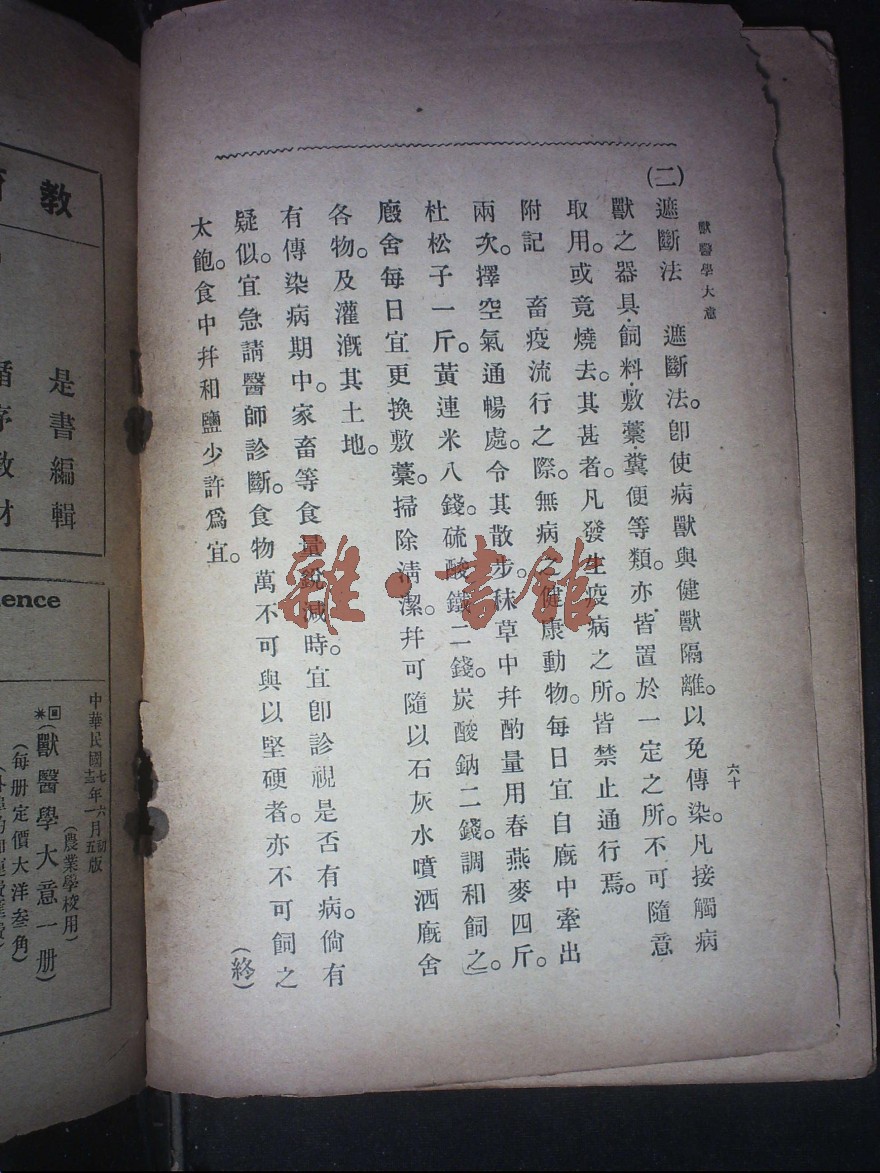 獸醫學大意
六十
(二)遮斷法　遮斷法。卽使病獸與健獸隔離。以免傳染。凡接觸病
獸之器具·飼料·敷藁·糞便等類。亦皆置於一定之所。不可隨意
取用。或竟燒去。其甚者。凡發生疫病之所。皆禁止通行焉。
附記　畜疫流行之際。無病之健康動物。每日宜自廐中牽出
兩次。擇空氣通暢處。令其散步。秣草中幷酌量用春燕麥四斤。
杜松子一斤。黃連米八錢。硫酸鐵二錢。炭酸鈉二錢。調和飼之。
廐舍每日宜更換敷藁。掃除淸潔。幷可隨以石灰水噴洒廐舍
各物。及灌漑其土地。
有傳染病期中。家畜等食量銳減時。宜卽診視是否有病。倘有
疑似。宜急請醫師診斷。食物萬不可與以堅硬者。亦不可飼之
太飽。食中幷和鹽少許爲宜。
(終)
雜·書館
教
是書編輯
循序教材
ence
中華民國七年六月初版
(農業學校用)
獸醫學大意一册)
(每册定價大洋叁角)